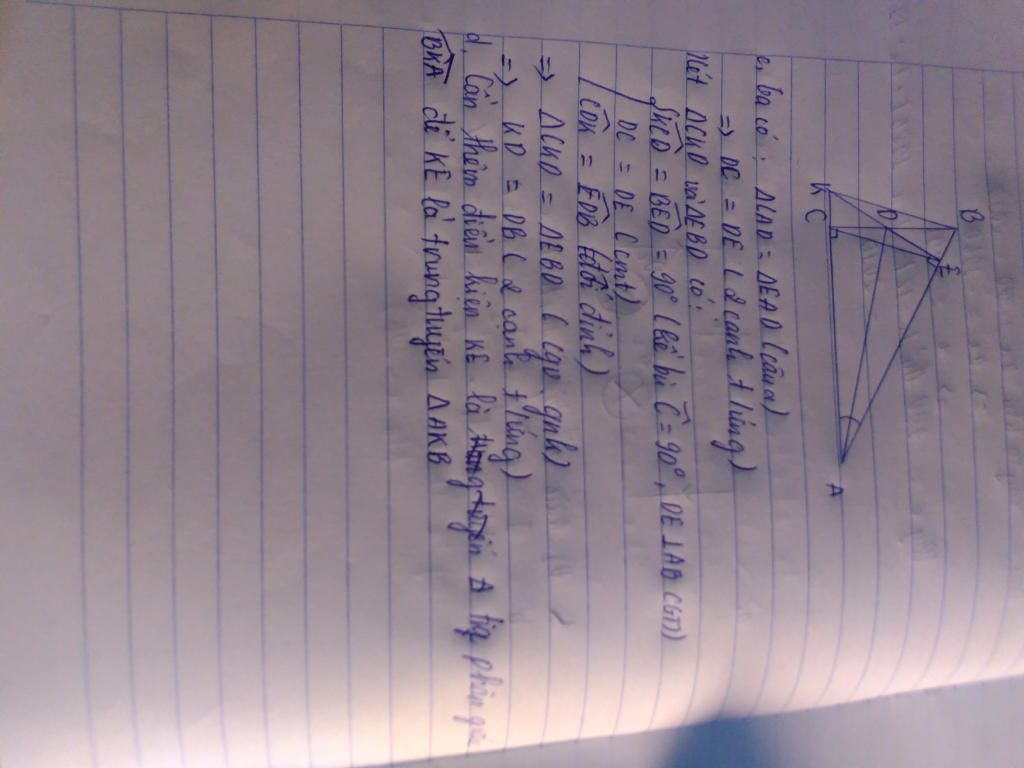 B
E
D
K
C
A
c, Ta có : ΔCAD = ΔEAD (câu a)
=> DC = DE ( 2 cạnh t ứng )
Xét ΔCKD và ΔEBD có :
KCD = BED = 90° ( kề bù C = 90°, DE ⊥ AB (GT))
DC = DE ( cmt )
CDK = EDB ( đối đỉnh )
=> ΔCKD = ΔEBD ( cgv gnk )
=> KD = DB ( 2 cạnh t ứng )
d, Cần thêm điều kiện KE là tia phân giác
BKA để KE là trung tuyến ΔAKB